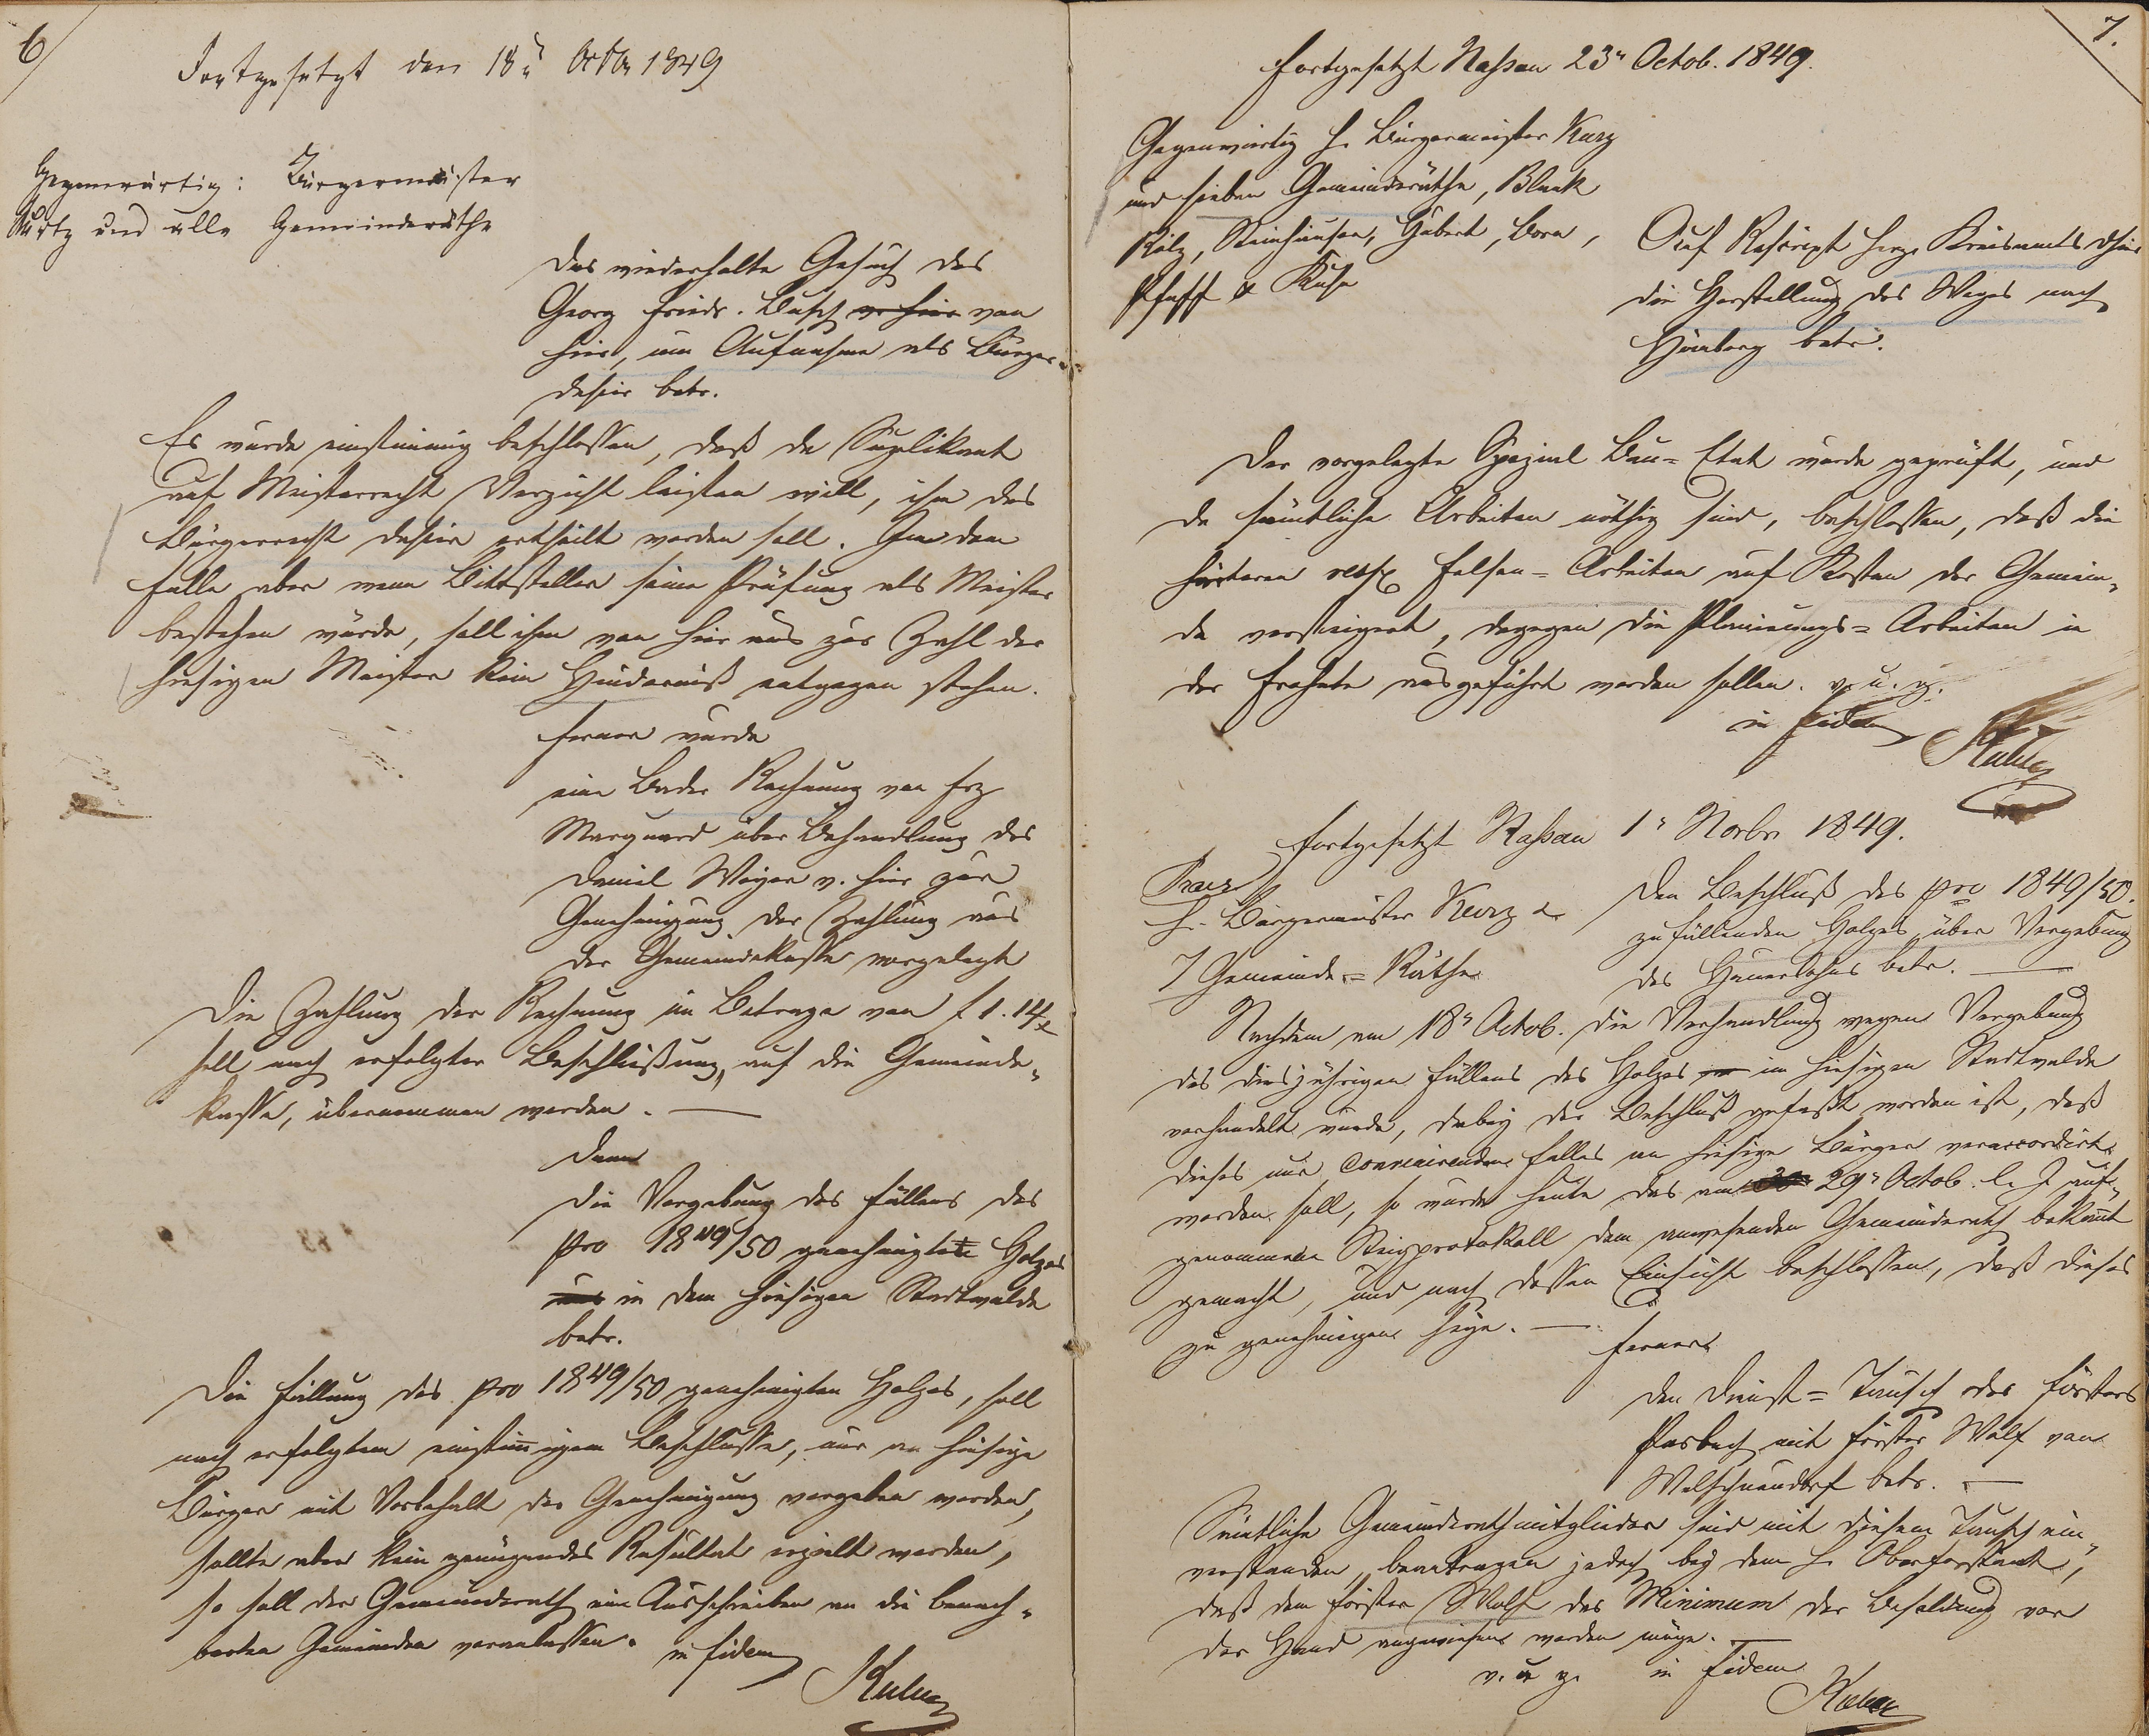 6
Fortgesetzt den 18n Octbr 1849
Gegenwärtig: Bürgermeister
Kurtz und alle Gemeinderäthe
Das wiederholte Gesuch des
Georg Friedr. Busch von
hier, um Aufnahme als Bürger
dahier betr.
Es wurde einstimmig beschlossen, daß da Supplikant
auf Meisterrecht Verzicht leisten will, ihm das
Bürgerrecht dahier ertheilt werden soll. Im dem
Falle aber wenn Bittsteller seine Prüfung als Meister
bestehen würde, soll ihm von hier aus zur Zahl der
hiesigen Meister kein Hinderniß entgegen stehen.
Ferner wurde
eine Bader Rechnung von
Marquard über Behandlung des
Daniel Weyer v. hier zur
Genehmigung der Zahlung aus
der Gemeindekasse vorgelegt
Die Zahlung der Rechnung im Betrage von f 1. 14x
soll nach erfolgter Beschließung, auf die Gemeinde-
kasse, übernommen werden. —
Dann
die Vergebung des Fällens des
pro 1849/50 genehmigten Holzes
in dem hiesigen Stadtwalde
betr.
Die Fällung des pro 1849/50 genehmigten Holzes, soll
nach erfolgtem einstimigem Beschlusse, nur an hiesige
Bürger mit Vorbehalt der Genehmigung vergeben werden,
sollte aber kein genügendes Resultat erzielt werden,
so soll der Gemeinderath ein Ausschreiben an die benach-
barten Gemeinden veranlassen. in fidem
7.
Fortgesetzt Naßau 23n Octob. 1849.
Gegenwärtig H. Bürgermeister Kurz
und sieben Gemeinderäthe, Blank
Rölz, Steinhäuser, Hubert, Born,
Pfaff & Kuhn
Auf Rescript Herz. Kreisamts dahier
die Herstellung des Weges nach
Hömberg betr.
Der vorgelegte Spezial Bau=Etat wurde geprüft, und
da sämtliche Arbeiten nöthig sind, beschlossen, daß die
härteren resp Felsen=Arbeiten auf Kosten der Gemein-
de versteigert, dagegen die Planirungs=Arbeiten in
der Frohnte ausgeführt werden sollen. v. u. g.
in fidem
Fortgesetzt Naßau 1n Novbr 1849.
Praes
H. Bürgermeister Kurz &
7 Gemeinde=Räthe
Den Beschluß des pro 1849/50.
zu fällenden Holzes über Vergebung
des Hauerlohns betr. —
Nachdem am 18n Octob. die Verhandlung wegen Vergebung
des diesjährigen Fällens des Holzes im hiesigen Stadtwalde
verhandelt wurde, dabey der Beschluß gefaßt worden ist, daß
dieses nur convenirenden Falles an hiesige Bürger veraccordirt
werden soll, so wurde heute das am 29n Octob. l. J auf-
genommene Steigprotokoll dem anwesenden Gemeinderath bekannt
gemacht, und nach dessen Einsicht beschlossen, daß dieses
zu genehmigen seye. —
Ferner
den Dienst=Tausch des Försters
Pasbach mit Förster Wolf von
Welschneudorf betr. —
Sämtliche Gemeinderathmitglieder sind mit diesem Tausch ein-
verstanden, beantragen jedoch bey dem H. Oberforstamt,
daß dem Förster Wolf das Minimum der Besoldung vor
der Hand angewiesen werden möge. —
v. u g. in fidem